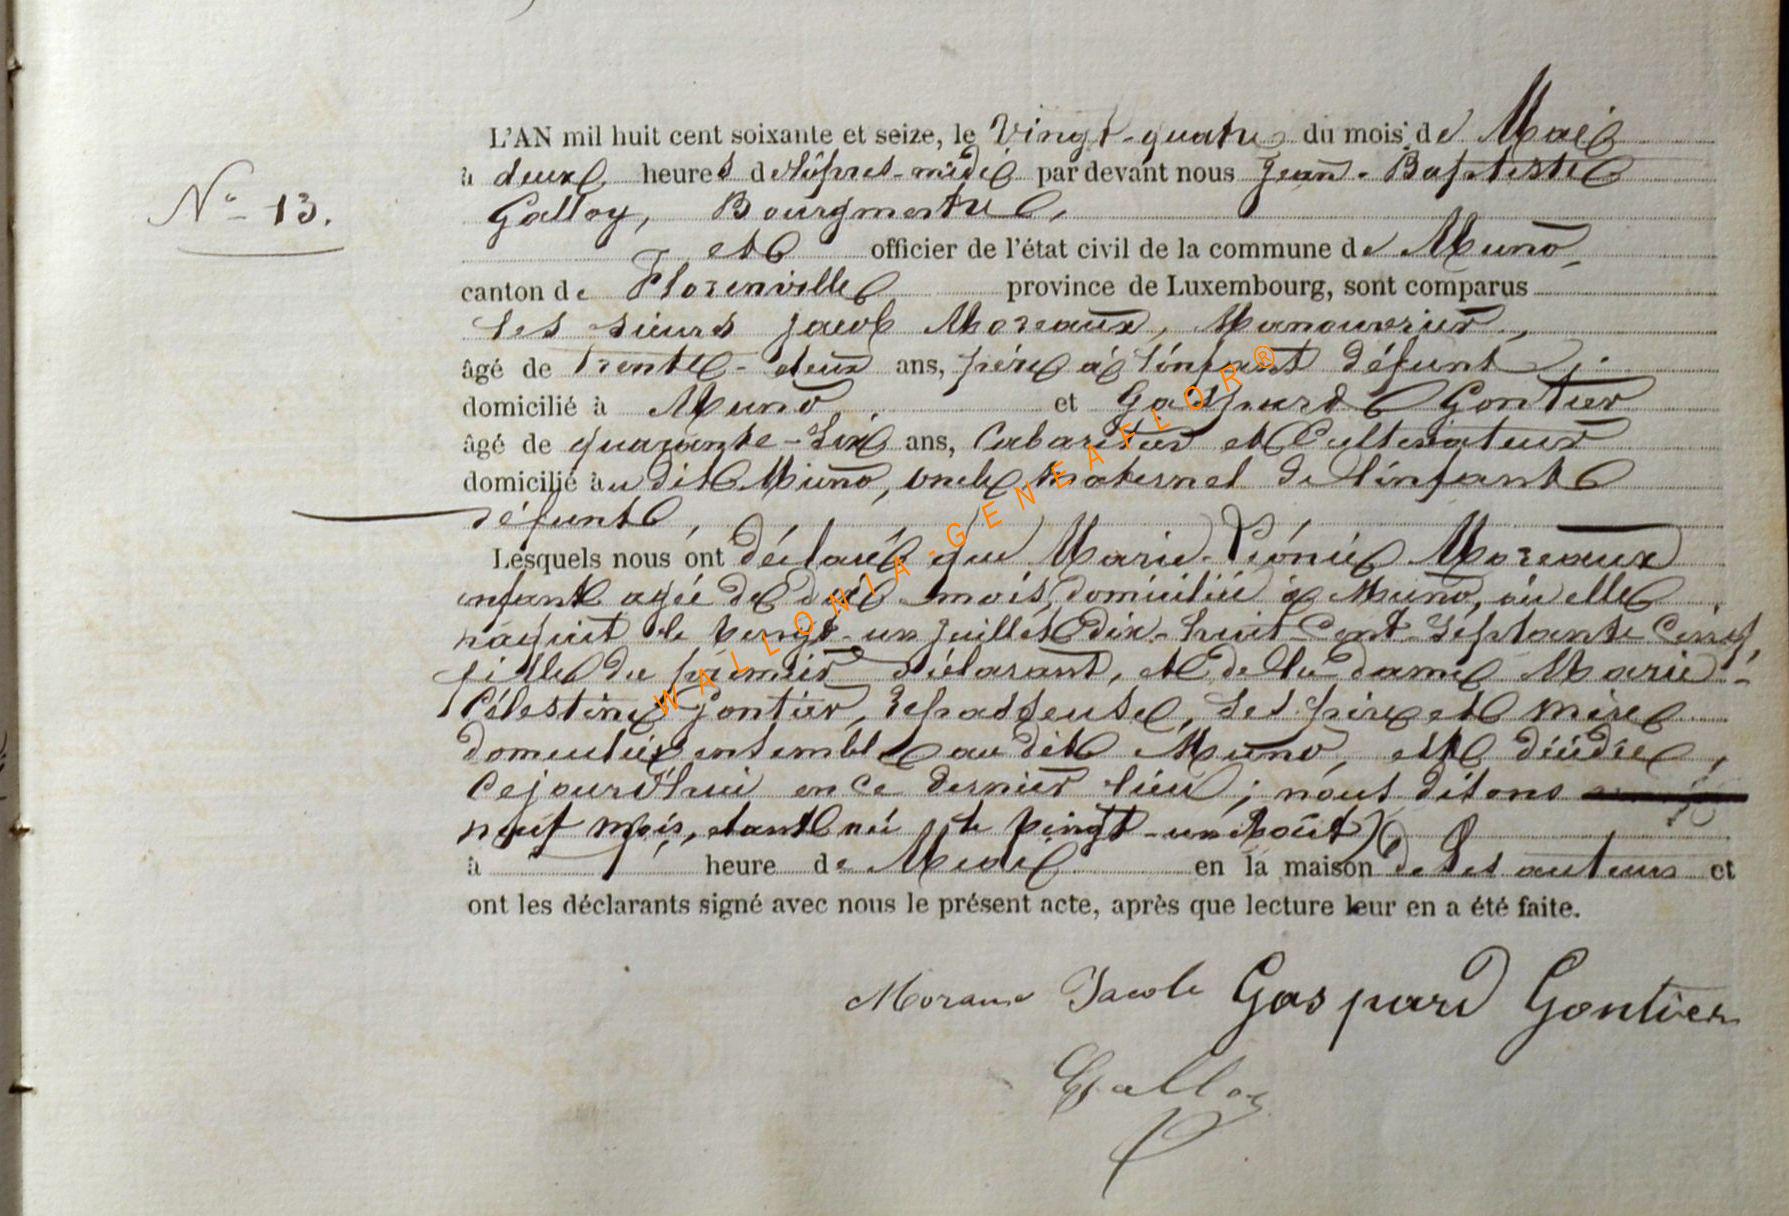 L'AN mil huit cent soixante et seize, le Vingt-quatre du mois de Mai
N° 13.
à deux heures de l'après-midi par devant nous Jean-Baptiste
Galloy, Bourgmestre,
et officier de l'état civil de la commune de Muno,
canton de Florenville province de Luxembourg, sont comparus
les sieurs Jacob Moreaux, Manouvrier,
âgé de trente-deux ans, père à l'enfant défunt,
domicilié à Muno, et Gaspard Gontier
âgé de quarante-six ans, Cabaretier et Cultivateur
domicilié au dit Muno, oncle maternel de l'enfant
défunt,
Lesquels nous ont déclaré que Marie-Léonie Moreaux
enfant agée de dix mois, domiciliée à Muno, où elle
naquit le vingt-un juillet dix-huit-cent-septante cinq,
fille du premier déclarant, et de la dame Marie-
Célestine Gontier, repasseuse, ses père et mère
domiciliés ensemble au dit Muno, est décédée,
cejourd'hui en ce dernier lieu; nous disons
neuf mois, étant née le vingt-un Août),
à heure de Midi en la maison de ses auteurs et
ont les déclarants signé avec nous le présent acte, après que lecture leur en a été faite.
Moraux Jacob Gaspard Gontier
Galloy
WALLONIA-GENEAFLOR®